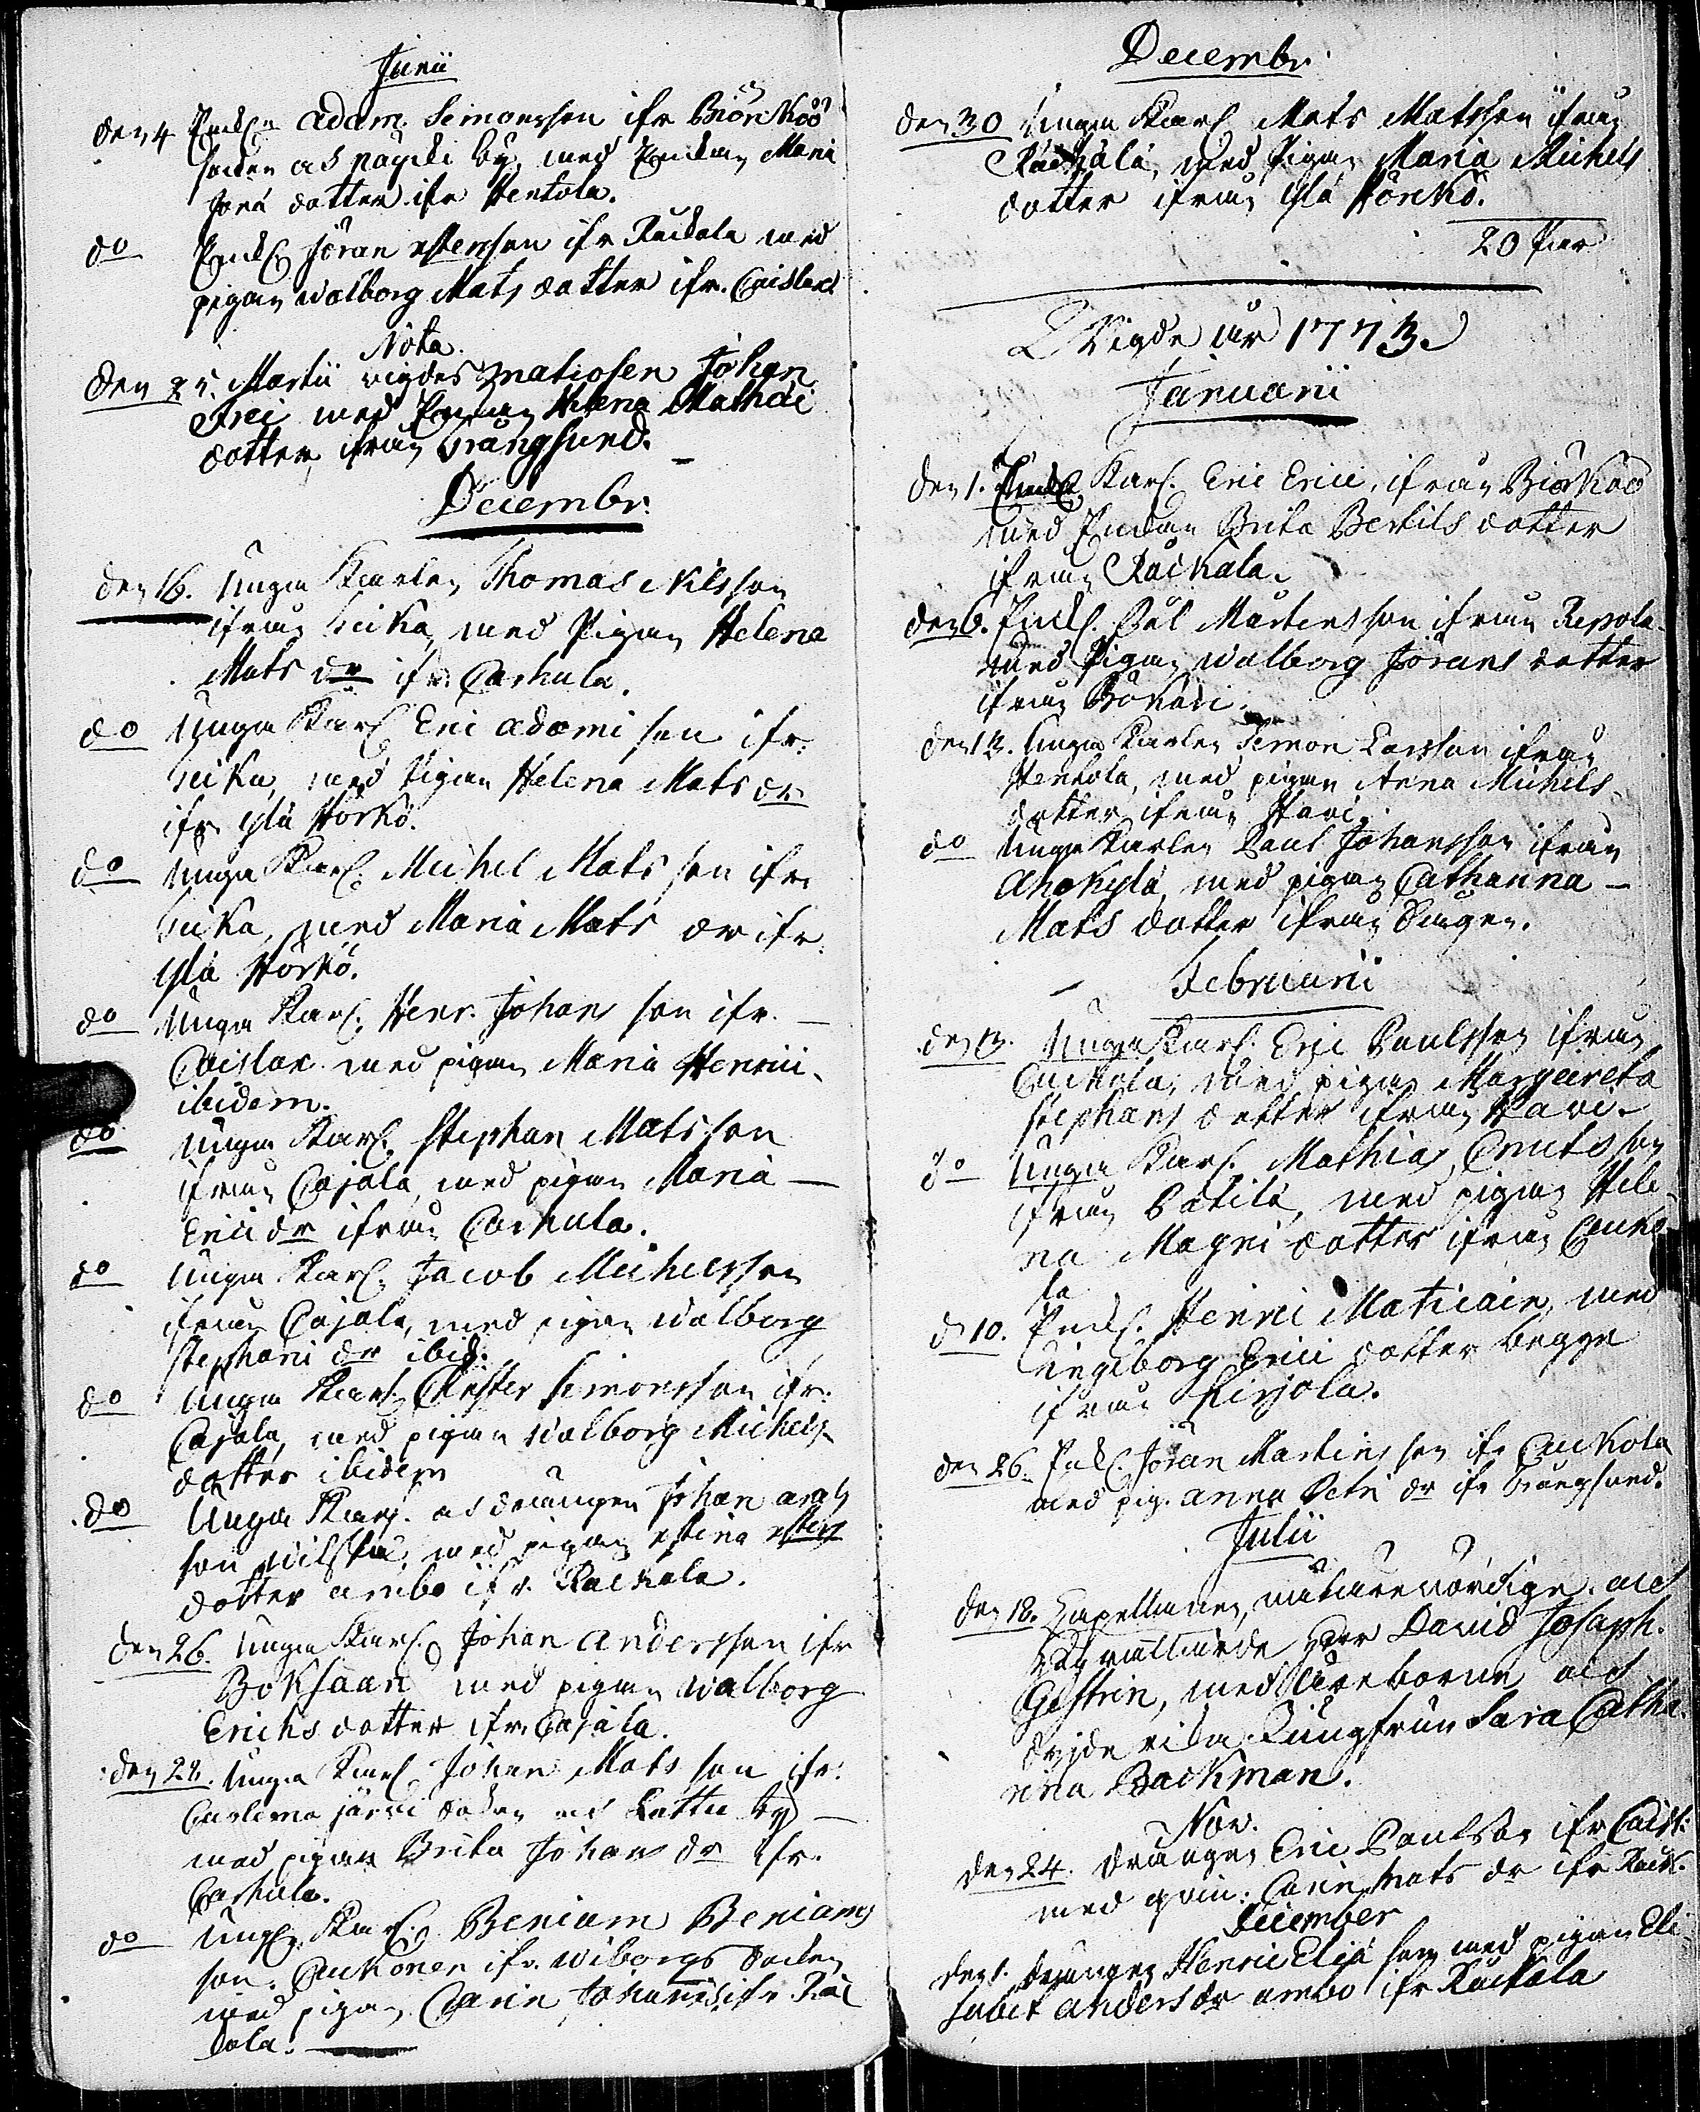 Junii
den 4 Enkl. Adam Simonsson ifr Biörköö
soken och näyki by, med Enkan Maria
Jora dotter ifr Hentola.
do Enkl. Jöran Stensson ifr Rackala med
pigan Walborg Mats dotter ifr. Caislax
Nota
den 25. Martii vigdes matrosen Johan
Frei med Enkan Helena Mathiæ
dotter ifrån Trångsund.
Decembr.
den 16. Unga Karlen Thomas Nilsson
ifrån, med Pigan Helena
Mats dr ifr. Carhula.
do Unga Karl. Eric Adami son ifr.
med Pigan Helena Mats dr
ifr Ylä Hörkö.
do Unga Karl. Michel Mats son ifr
med Maria Mats dr ifr
Ylä Hörkö.
do Unga Karl. Henr. Johans son ifr.
Caislax med pigan Maria Henrici
ibidem.
do Unga Karl. Stephan Matsson
ifrån Cajala, med pigan Maria
Erici dr ifrån Carhula.
do Unga Karl. Jacob Michelsson
ifrån Cajala, med pigan Walborg
Stephani dr ibid.
do Unga Karl. Chrster Simonsson ifr.
Cajala, med pigan Walborg Michels
dotter ibidem
do Unga Karl. och drängen Johan
son Wilska, med pigan Stina Stens
dotter ambo ifr. Rackala.
den 26. Unga Karl. Johan Andersson ifr
Boksaari med pigan Walborg
Erichs dotter ifr. Cajala.
den 28. Unga Karl. Johan Mats son ifr.
järvi soken och Lattu by
med pigan Brita Johans dr ifr.
Carhula.
do Unga Karl. Beniam Beniams
son. Cuckonen ifr. Wiborgs soken
med pigan Carin Johannis ifr Rac
kala.
Decembr.
den 30 Unga Karl. Mats Matsson ifrån
Rackala, med Pigan Maria Michels
dotter ifrån Ylä Hörkö.
20 Par
Vigde år 1773.
Januarii
den 1. Karl. Eric Erici, ifrån Biörköö
med Enkan Brita Bertils dotter
ifrån Rackala.
den 6. Enkl. Pål Mårtensson ifrån Repola
med Pigan Walborg Jörans dotter
ifrån
den 13. Unga Karlen Simon Larsson ifrån
Hentola, med pigan Anna Michels
dotter ifrån Hari.
do Unga Karlen Paul Johansson ifrån
Ahokylä, med pigan Catharina
Mats dotter ifrån
Februarii
den 13. Unga Karl. Eric Paulsson ifrån
Cuckola, med pigan Margareta
Stephans dotter ifrån Hari.
do Unga Karl. Mathias Cnutsson
ifrån Satila, med pigan Hele
na Magni dotter ifrån Cucko
la
d 10. Enkl. Henric Maticain, med
Ingeborg Erici dotter begge
ifrån Kirjola.
den 26. Enkl. Jöran Martins son ifr Cuckola
med pig. Anna Petri dr ifr Trångsund.
Julii
den 18. Capellanen, och
Herr David Josaph.
Gestrin, med och
Jungfrun Sara Catha
rina Backman.
Nov.
den 24. drängen Eric Paulson ifr Caisl.
med qvin. Carin Mats dr ifr Rack.
December
den 1. drängen Henric Eliæ son med pigan Eli
sabet Anders dr ambo ifr Rackala